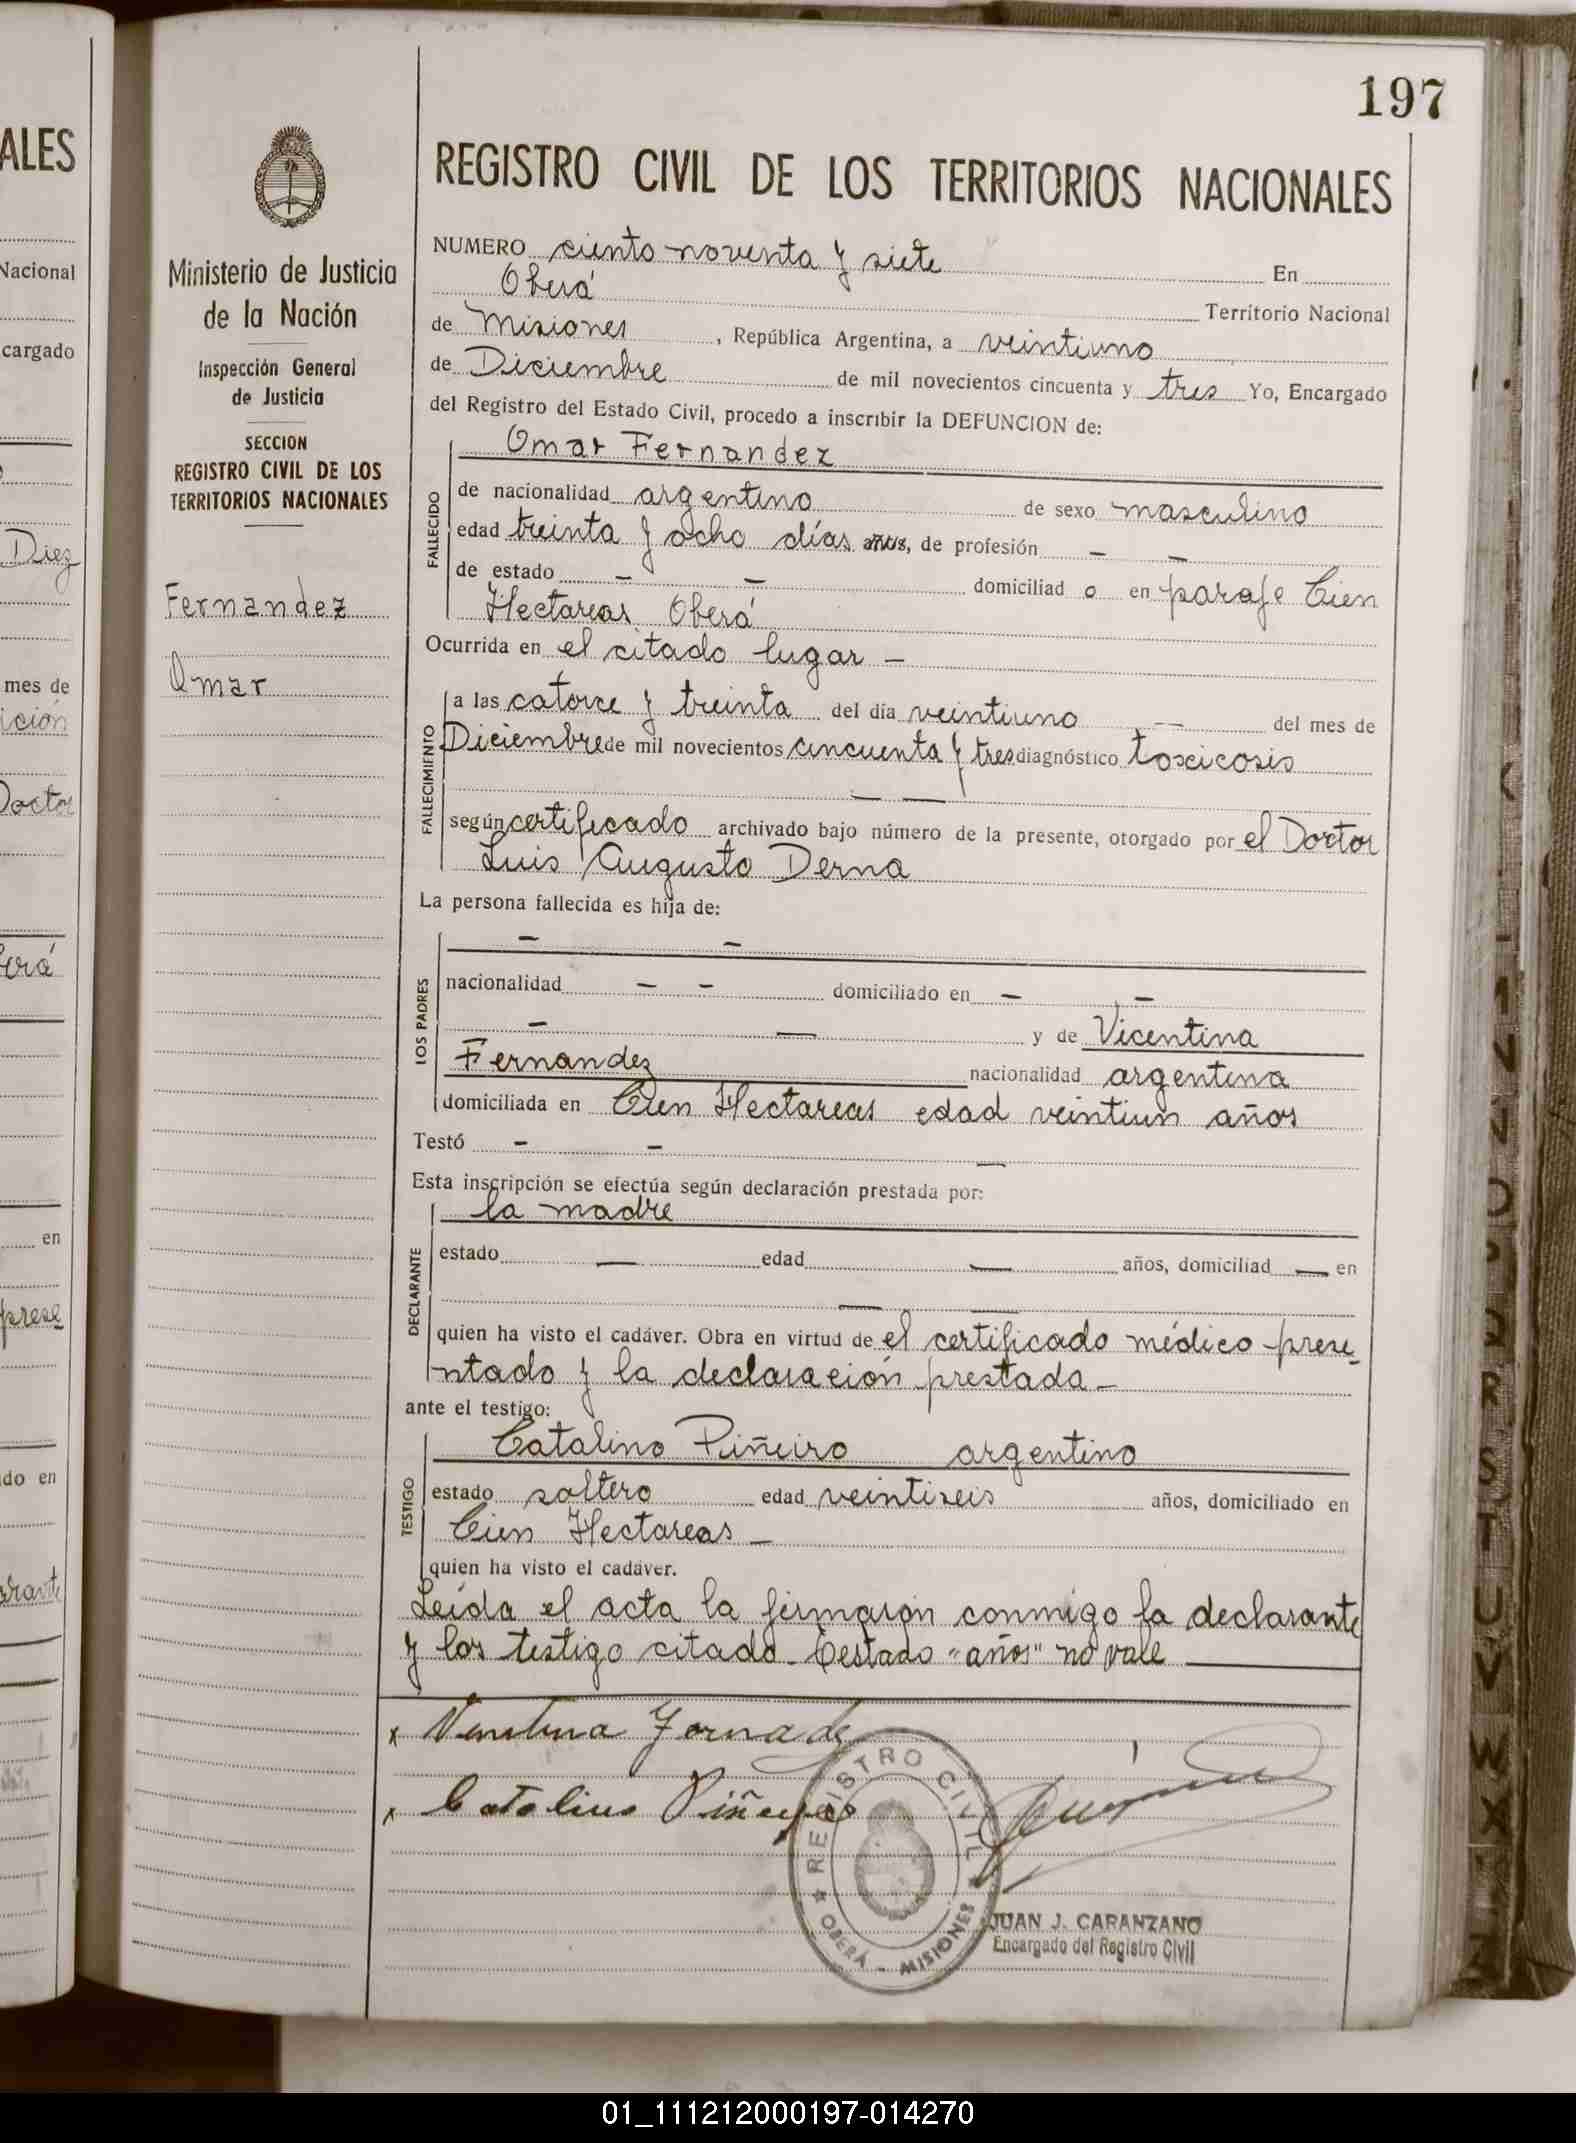 197
ALES
Nacional
cargado
Diez
mes de
ición
Doctor
en
prese
do en
Ministerio de Justicia
de la Nación
Inspección General
de Justicia
SECCION
REGISTRO CIVIL DE LOS
TERRITORIOS NACIONALES
Fernandez
Omar
REGISTRO CIVIL DE LOS TERRITORIOS NACIONALES
NUMERO ciento noventa y siete En
Oberá Territorio Nacional
de Misiones, República Argentina, a veintiuno
de Diciembre de mil novecientos cincuenta y tres Yo, Encargado
del Registro del Estado Civil, procedo a inscribir la DEFUNCION de:
Omar Fernandez
FALLECIDO
de nacionalidad argentino de sexo masculino
edad treinta y ocho días años, de profesión — —
de estado — — domiciliad o en paraje Cien
Hectareas Oberá
Ocurrida en el citado lugar —
FALLECIMIENTO
a las catorce y treinta del día veintiuno — del mes de
Diciembre de mil novecientos cincuenta y tres diagnóstico toxicosis
— —
según certificado archivado bajo número de la presente, otorgado por el Doctor
Luis Augusto Derna
La persona fallecida es hija de:
LOS PADRES
— —
nacionalidad — — domiciliado en — —
— — y de Vicentina
Fernandez nacionalidad argentina
domiciliada en Cien Hectareas edad veintiun años
Testó — — —
Esta inscripción se efectúa según declaración prestada por:
DECLARANTE
la madre
estado — edad — años, domiciliad — en
— —
quien ha visto el cadáver. Obra en virtud de el certificado médico prese
ntado y la declaración prestada —
ante el testigo:
TESTIGO
Catalino Piñeiro argentino
estado soltero edad veintiseis años, domiciliado en
Cien Hectareas —
quien ha visto el cadáver.
Leída el acta la firmaron conmigo la declarante
y los testigo citado. Testado "años" no vale
x
x Catalino Piñeyro
REGISTRO CIVIL
OBERÁ - MISIONES
JUAN J. CARANZANO
Encargado del Registro Civil
R S T U V W X
01_111212000197-014270